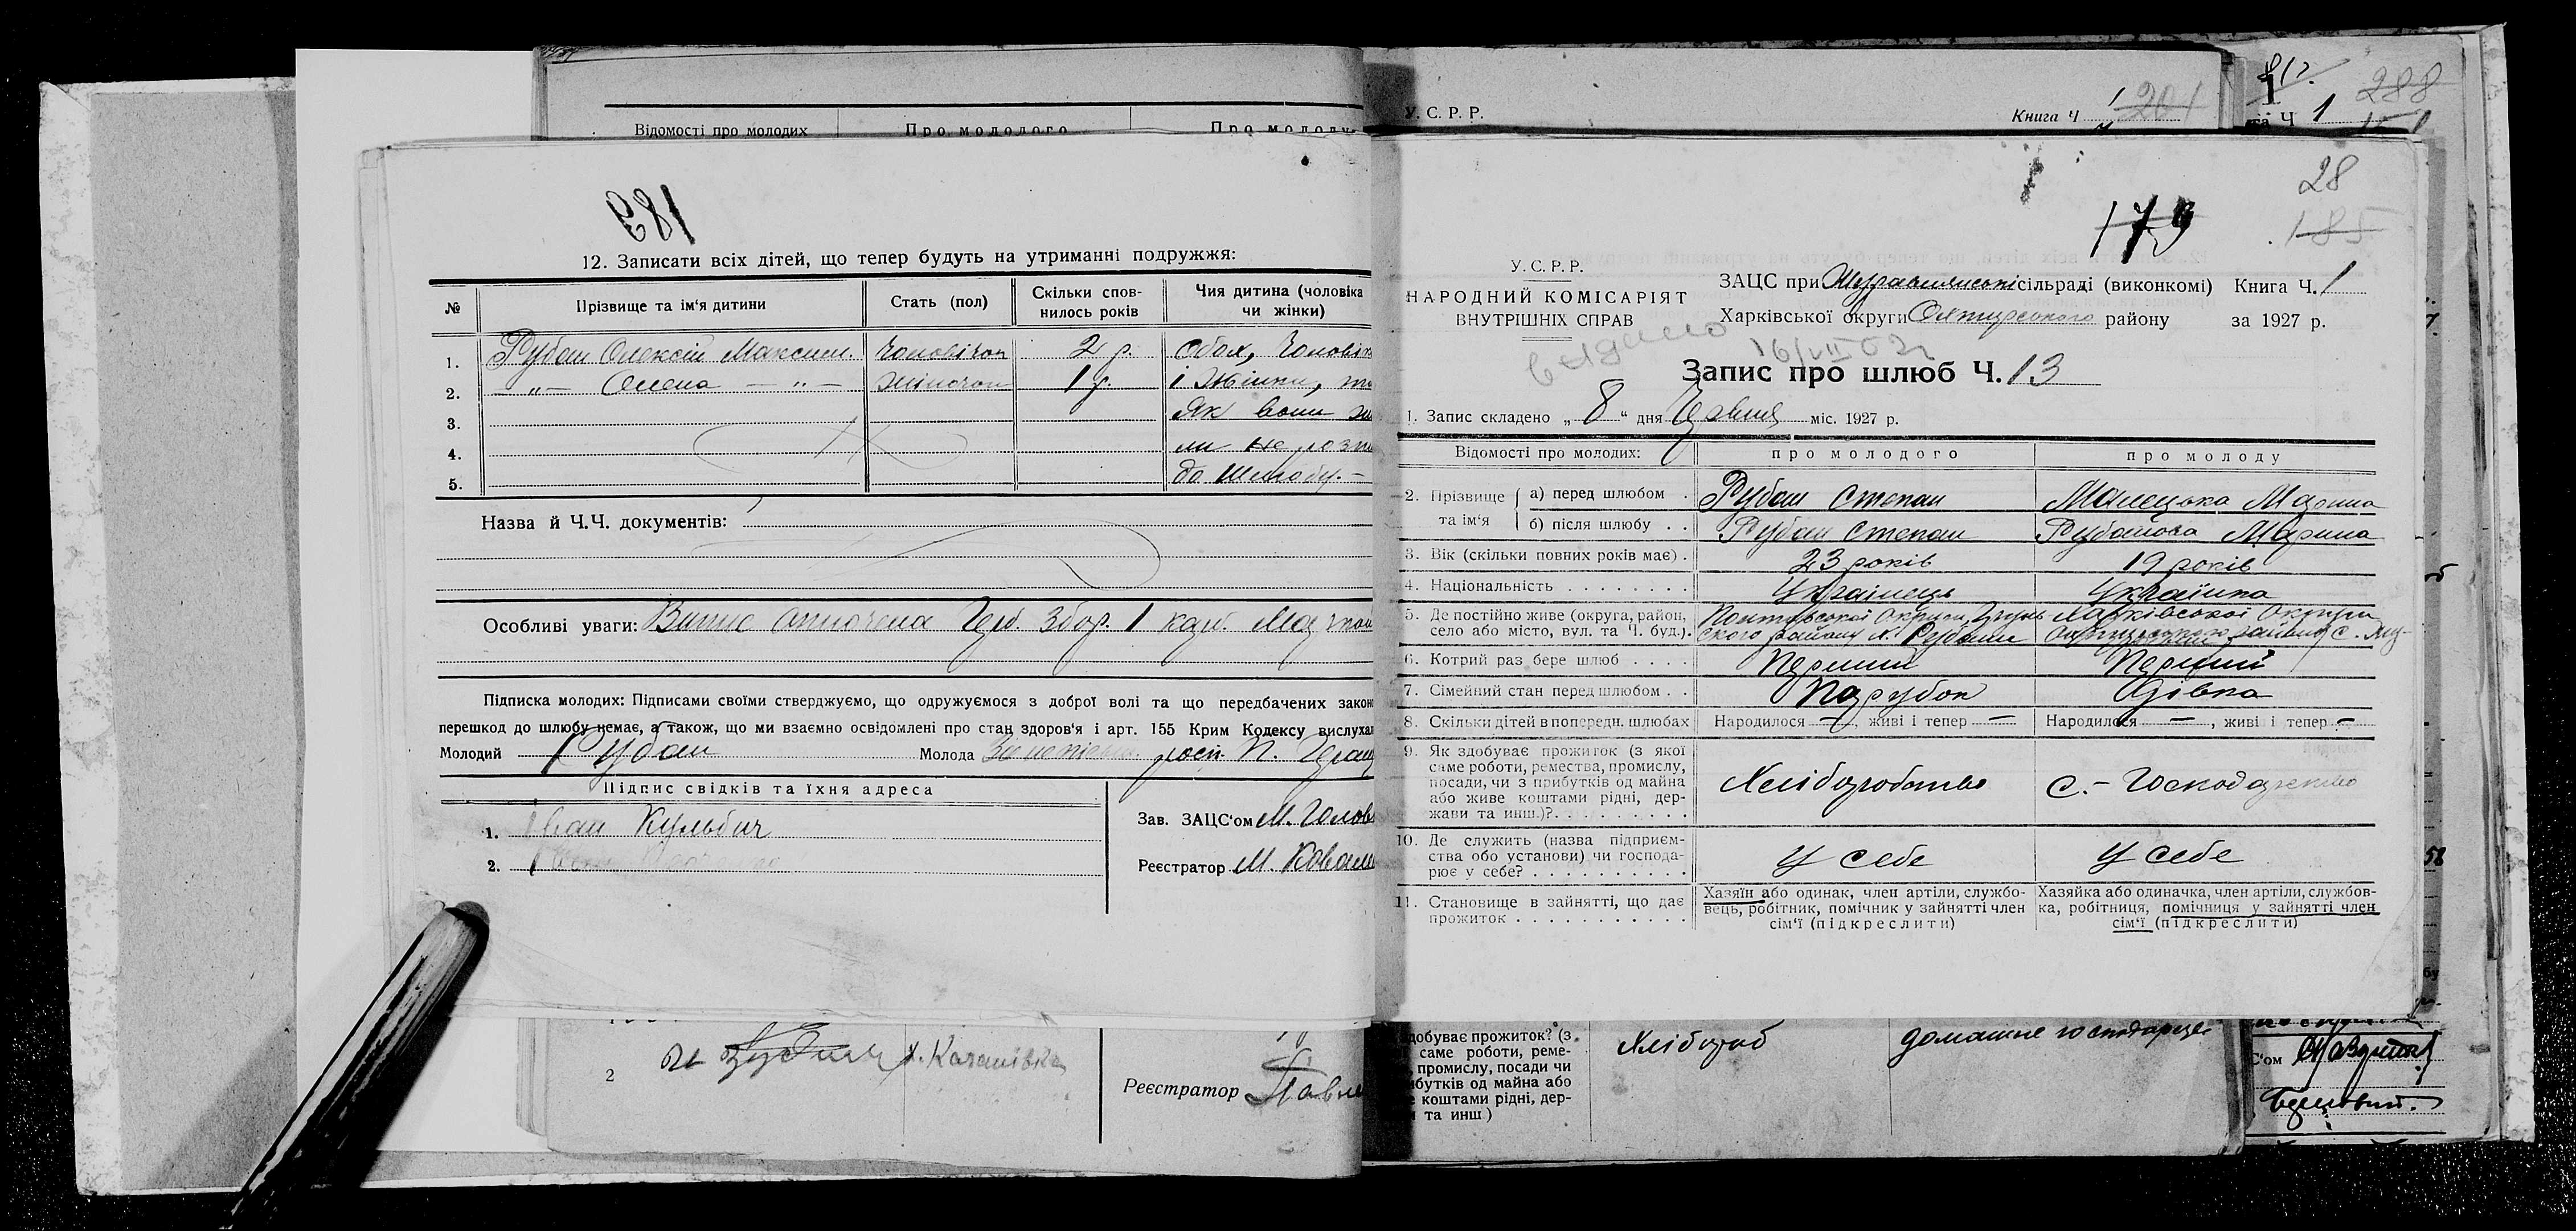 Відомості про молодих Про молодого Про молоду
189
12. Записати всіх дітей, що тепер будуть на утриманні подружжя:
№ Прізвище та ім'я дитини Стать (пол) Скільки спов- нилось років Чия дитина (чоловіка чи жінки)
1. Рубан Олексій Максим. чоловічоі 2 р. Обох, чоловік
2. —„— Олена —„— жіночоі 1 р. і жінки,
3. Як вони
4. не
5. до шлюбу.—
Назва й Ч.Ч. документів:
Особливі уваги: Випис оплочена Герб. Збор. 1 карб.
Підписка молодих: Підписами своїми стверджуємо, що одружуємося з доброї волі та що передбачених закон
перешкод до шлюбу немає, а також, що ми взаємно освідомлені про стан здоров'я і арт. 155 Крим Кодексу вислуха
Молодий Рубан Молода росп. П.
Підпис свідків та їхня адреса
1. Іван Кульбач
2.
Зав. ЗАЦС'ом М. Голов
Реєстратор М. Ковал
2 х. Качанівка
Реєстратор Павле
У. С. Р. Р. Книга Ч 1 201
Ч 1 288
28
179 185
У. С. Р. Р.
НАРОДНИЙ КОМІСАРІЯТ
ВНУТРІШНІХ СПРАВ
ЗАЦС при сільраді (виконкомі) Книга Ч. 1
Харківської округи Охтирського району за 1927 р.
видано
Запис про шлюб Ч. 13
1. Запис складено „8“ дня міс. 1927 р.
Відомості про молодих: про молодого про молоду
2. Прізвище та ім'я
а) перед шлюбом . Рубан Степан Манецька Марина
б) після шлюбу . . Рубан Степан Рубанова Марина
3. Вік (скільки повних років має) . 23 років 19 років
4. Національність . . . . . . . . Українець Українка
5. Де постійно живе (округа, район, село або місто, вул. та Ч. буд.). Полтавської Округи, Грунь ского району х. Рубани Харківської Округи Охтирського району с.
6. Котрий раз бере шлюб . . . . Перший Перший
7. Сімейний стан перед шлюбом . . Парубок Дівка
8. Скільки дітей в попередн. шлюбах Народилося — , живі і тепер — Народилося — , живі і тепер —
9. Як здобуває прожиток (з якої
саме роботи, ремества, промислу,
посади, чи з прибутків од майна
або живе коштами рідні, дер-
жави та инш.)?. . . . . . . . .
Хліборобство с.-Господарство
10. Де служить (назва підприєм-
ства обо установи) чи господа-
рює у себе? . . . . . . . . . .
У себе У себе
11. Становище в зайнятті, що дає
прожиток . . . . . . . . . . .
Хазяїн або одинак, член артіли, службо-
вець, робітник, помічник у зайнятті член
сім'ї (підкреслити)
Хазяйка або одиначка, член артіли, службов-
ка, робітниця, помічниця у зайнятті член
сім'ї (підкреслити)
58
добуває прожиток? (з
саме роботи, реме-
промислу, посади чи
ибутків од майна або
коштами рідні, дер-
та инш)
Хлібороб домашнє господарце
С'ом